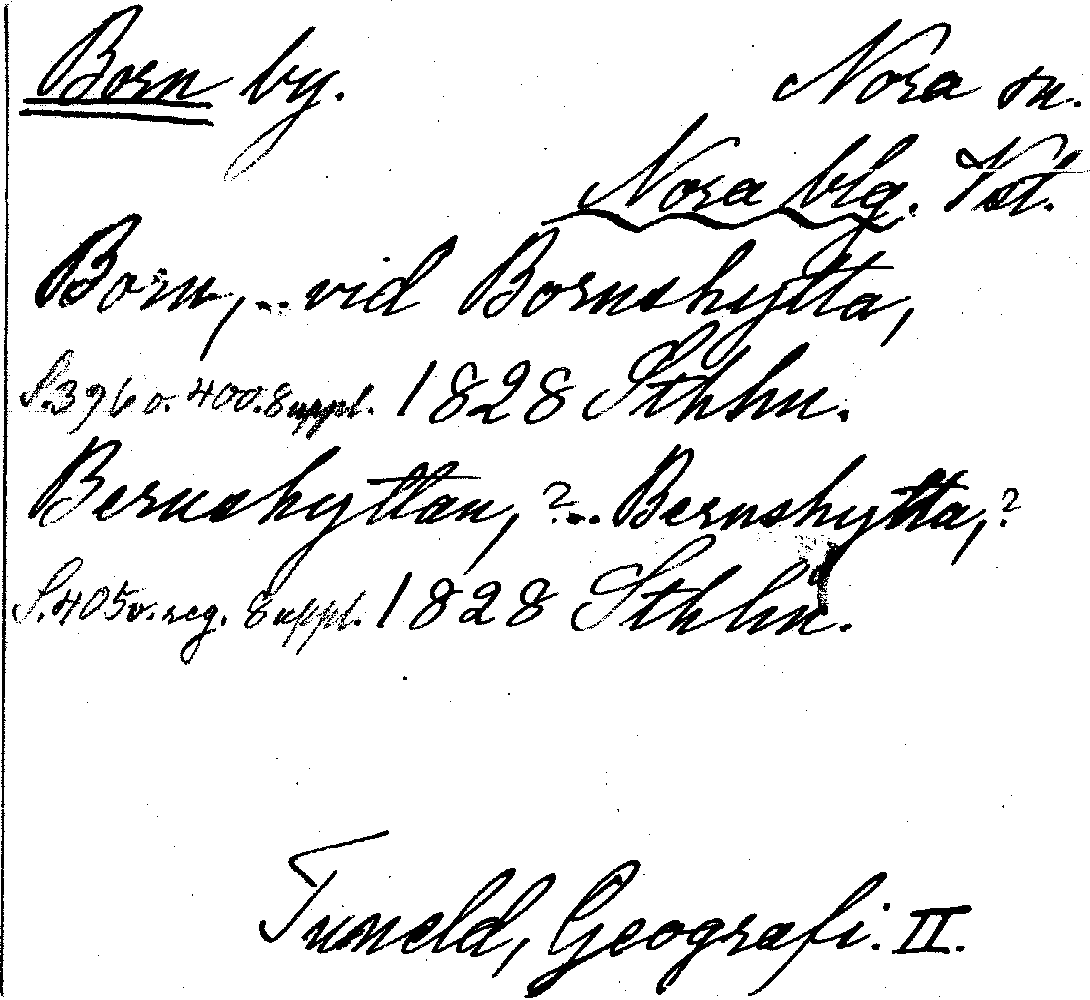 Born by. Nora sn.
Nora blg. Vstl.
Born, .. vid Bornshytta,
S.396 o. 400. Suppl. 1828 Sthlm.
Bernshyttan, ? .. Bernshytta, ?
S.405 o. reg. Suppl. 1828 Sthlm.
Tuneld, Geografi. II.